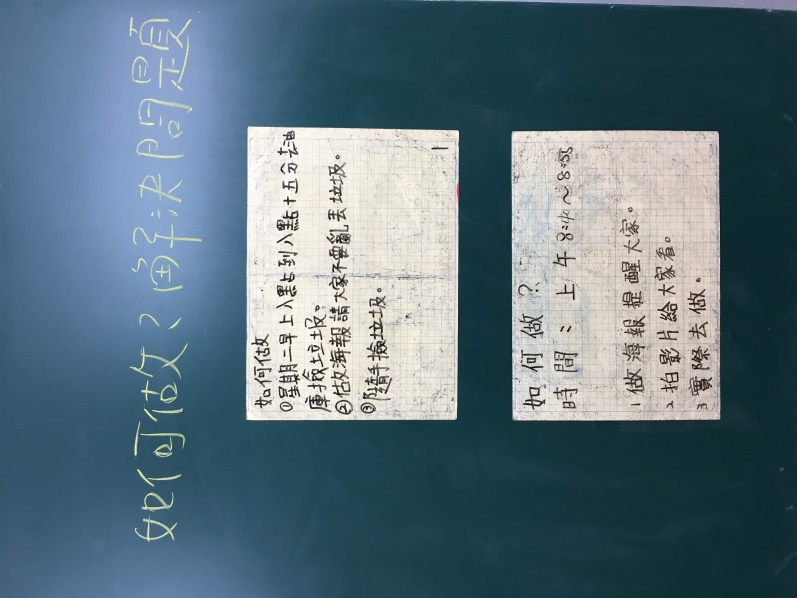 如何做？解決問題
如何做
①星期二早上八點到八點十五分去油
庫撿垃圾。
②做海報請大家不要亂丟垃圾。
③隨手撿垃圾。
1
如何做？
時間：上午8:40～8:55
1 做海報提醒大家。
2 拍影片給大家看。
3 實際去做。